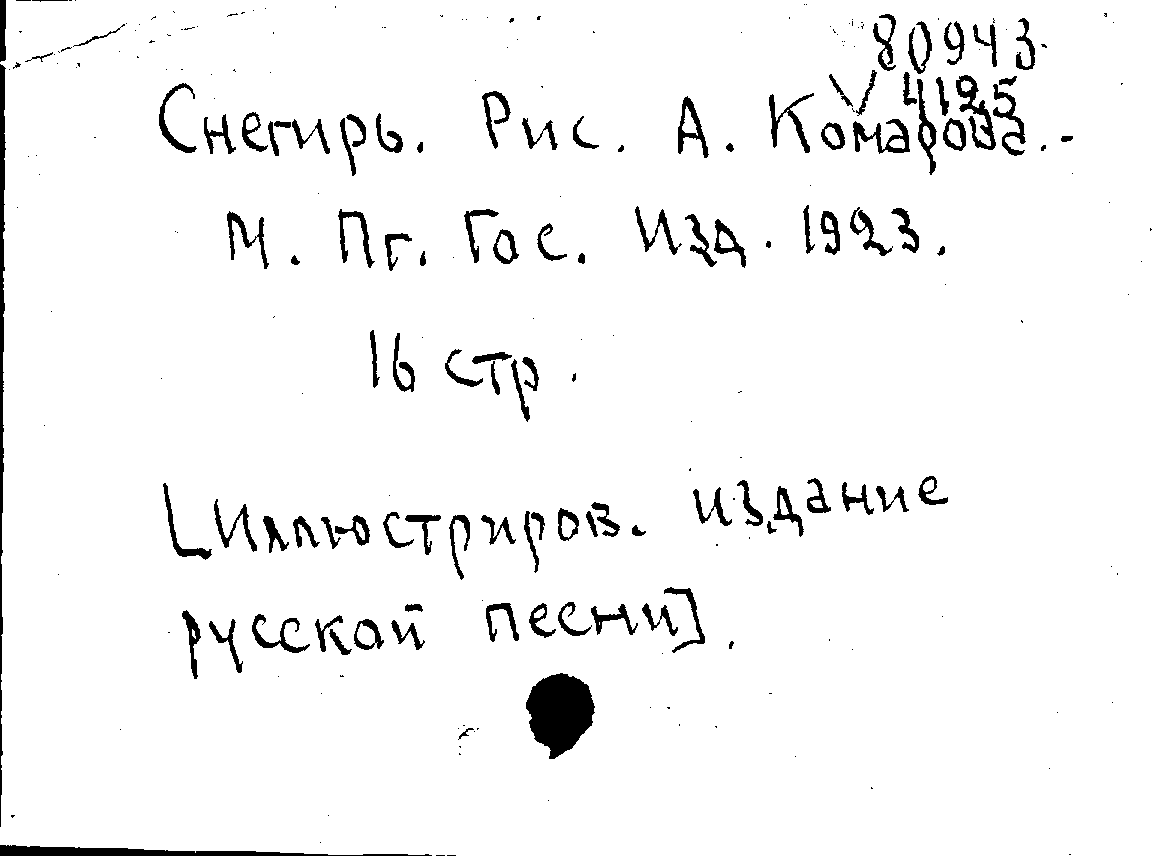 80943
V 4125
Снегирь. Рис. А. Комарова.-
М. Пг. Гос. Изд. 1923.
16 стр.
[Иллюстриров. издание
русской песни].